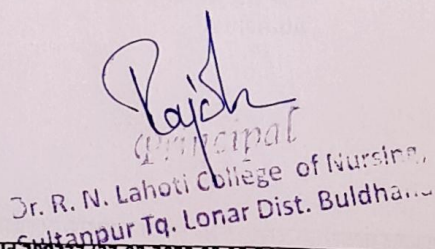 Principal
Dr. R. N. Lahoti College of Nursing,
Sultanpur Tq. Lonar Dist. Buldhana